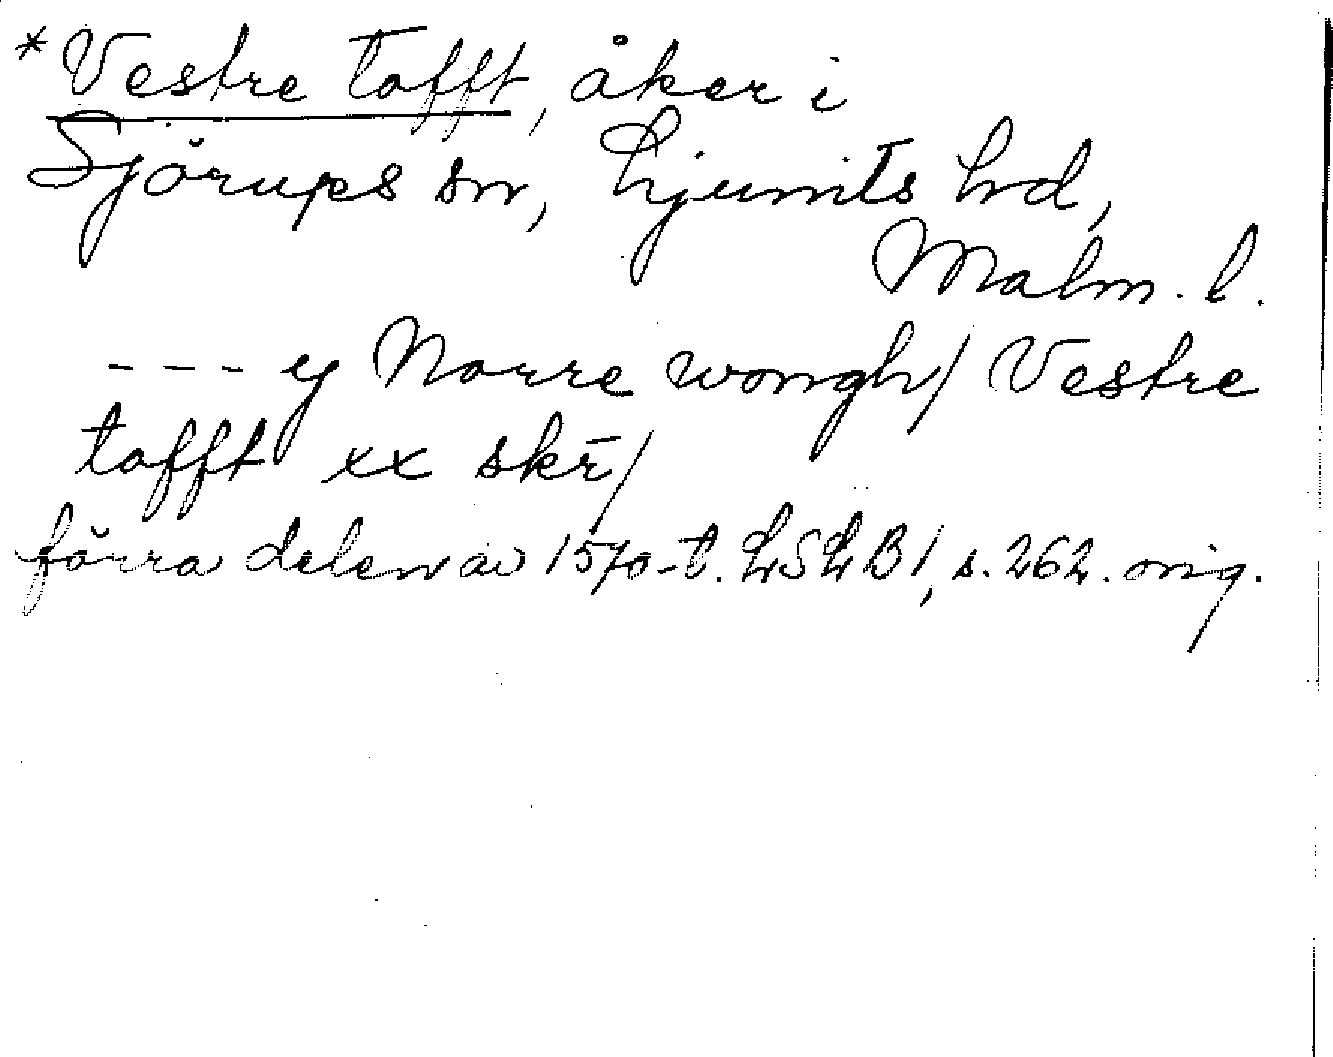 *Vestre tofft, åker i
Sjörups sn, Ljunits hd,
Malm. l.
- - - ej Norre wongh/ Vestre
tofft xx skr̄/
förra delen av 1570-t. LSLB 1, s. 262. orig.